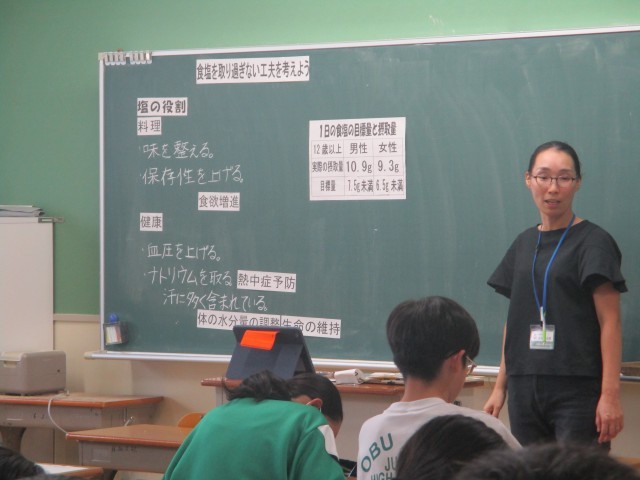 食塩を取り過ぎない工夫を考えよう
塩の役割
料理
・味を整える。
・保存性を上げる。
食欲増進
健康
・血圧を上げる。
・ナトリウムを取る 熱中症予防
汗に多く含まれている。
体の水分量の調整 生命の維持
1日の食塩の目標量と摂取量
12歳以上 男性 女性
実際の摂取量 10.9g 9.3g
目標量 7.5g未満 6.5g未満
OBU
JU
HIGH